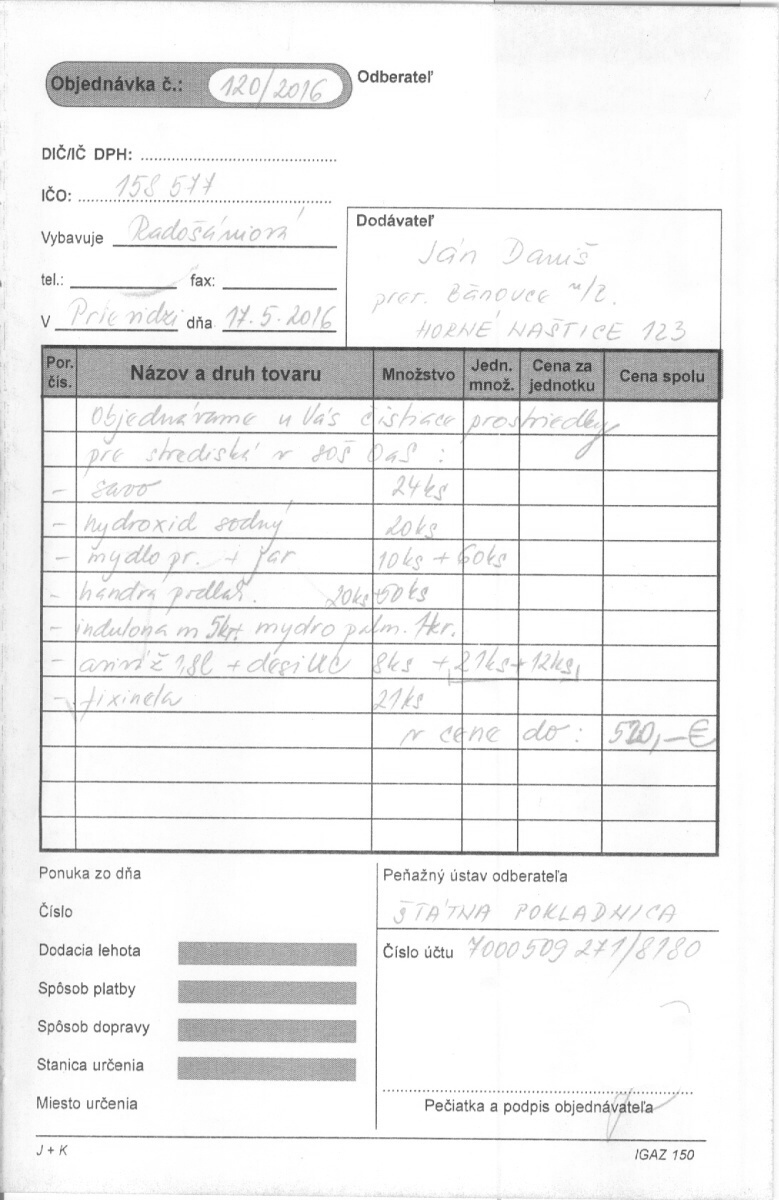 Objednávka č.: 120/2016
Odberateľ
DIČ/IČ DPH:
IČO: 158 577
Vybavuje Radošániová
tel.: fax:
V Prievidzi dňa 17.5.2016
Dodávateľ
Ján Daniš
prev. Bánovce n/B.
HORNÉ NAŠTICE 123
Por. čís. Názov a druh tovaru Množstvo Jedn. množ. Cena za jednotku Cena spolu
Objednávame u Vás čistiace prostriedky
pre strediská v SOŠ OaS :
- savo 24ks
- hydroxid sodný 20ks
- mydlo pr. + jar 10ks + 60ks
- handra podlah. 20ks+50ks
- indulona m 5kr. mydlo palm. 1kr.
- 1,8l + 8ks + 21ks + 12ks
- fixinela 21ks
v cene do : 520,-€
Ponuka zo dňa
Číslo
Dodacia lehota
Spôsob platby
Spôsob dopravy
Stanica určenia
Miesto určenia
Peňažný ústav odberateľa
ŠTÁTNA POKLADNICA
Číslo účtu 7000509271/8180
Pečiatka a podpis objednávateľa
J + K
IGAZ 150